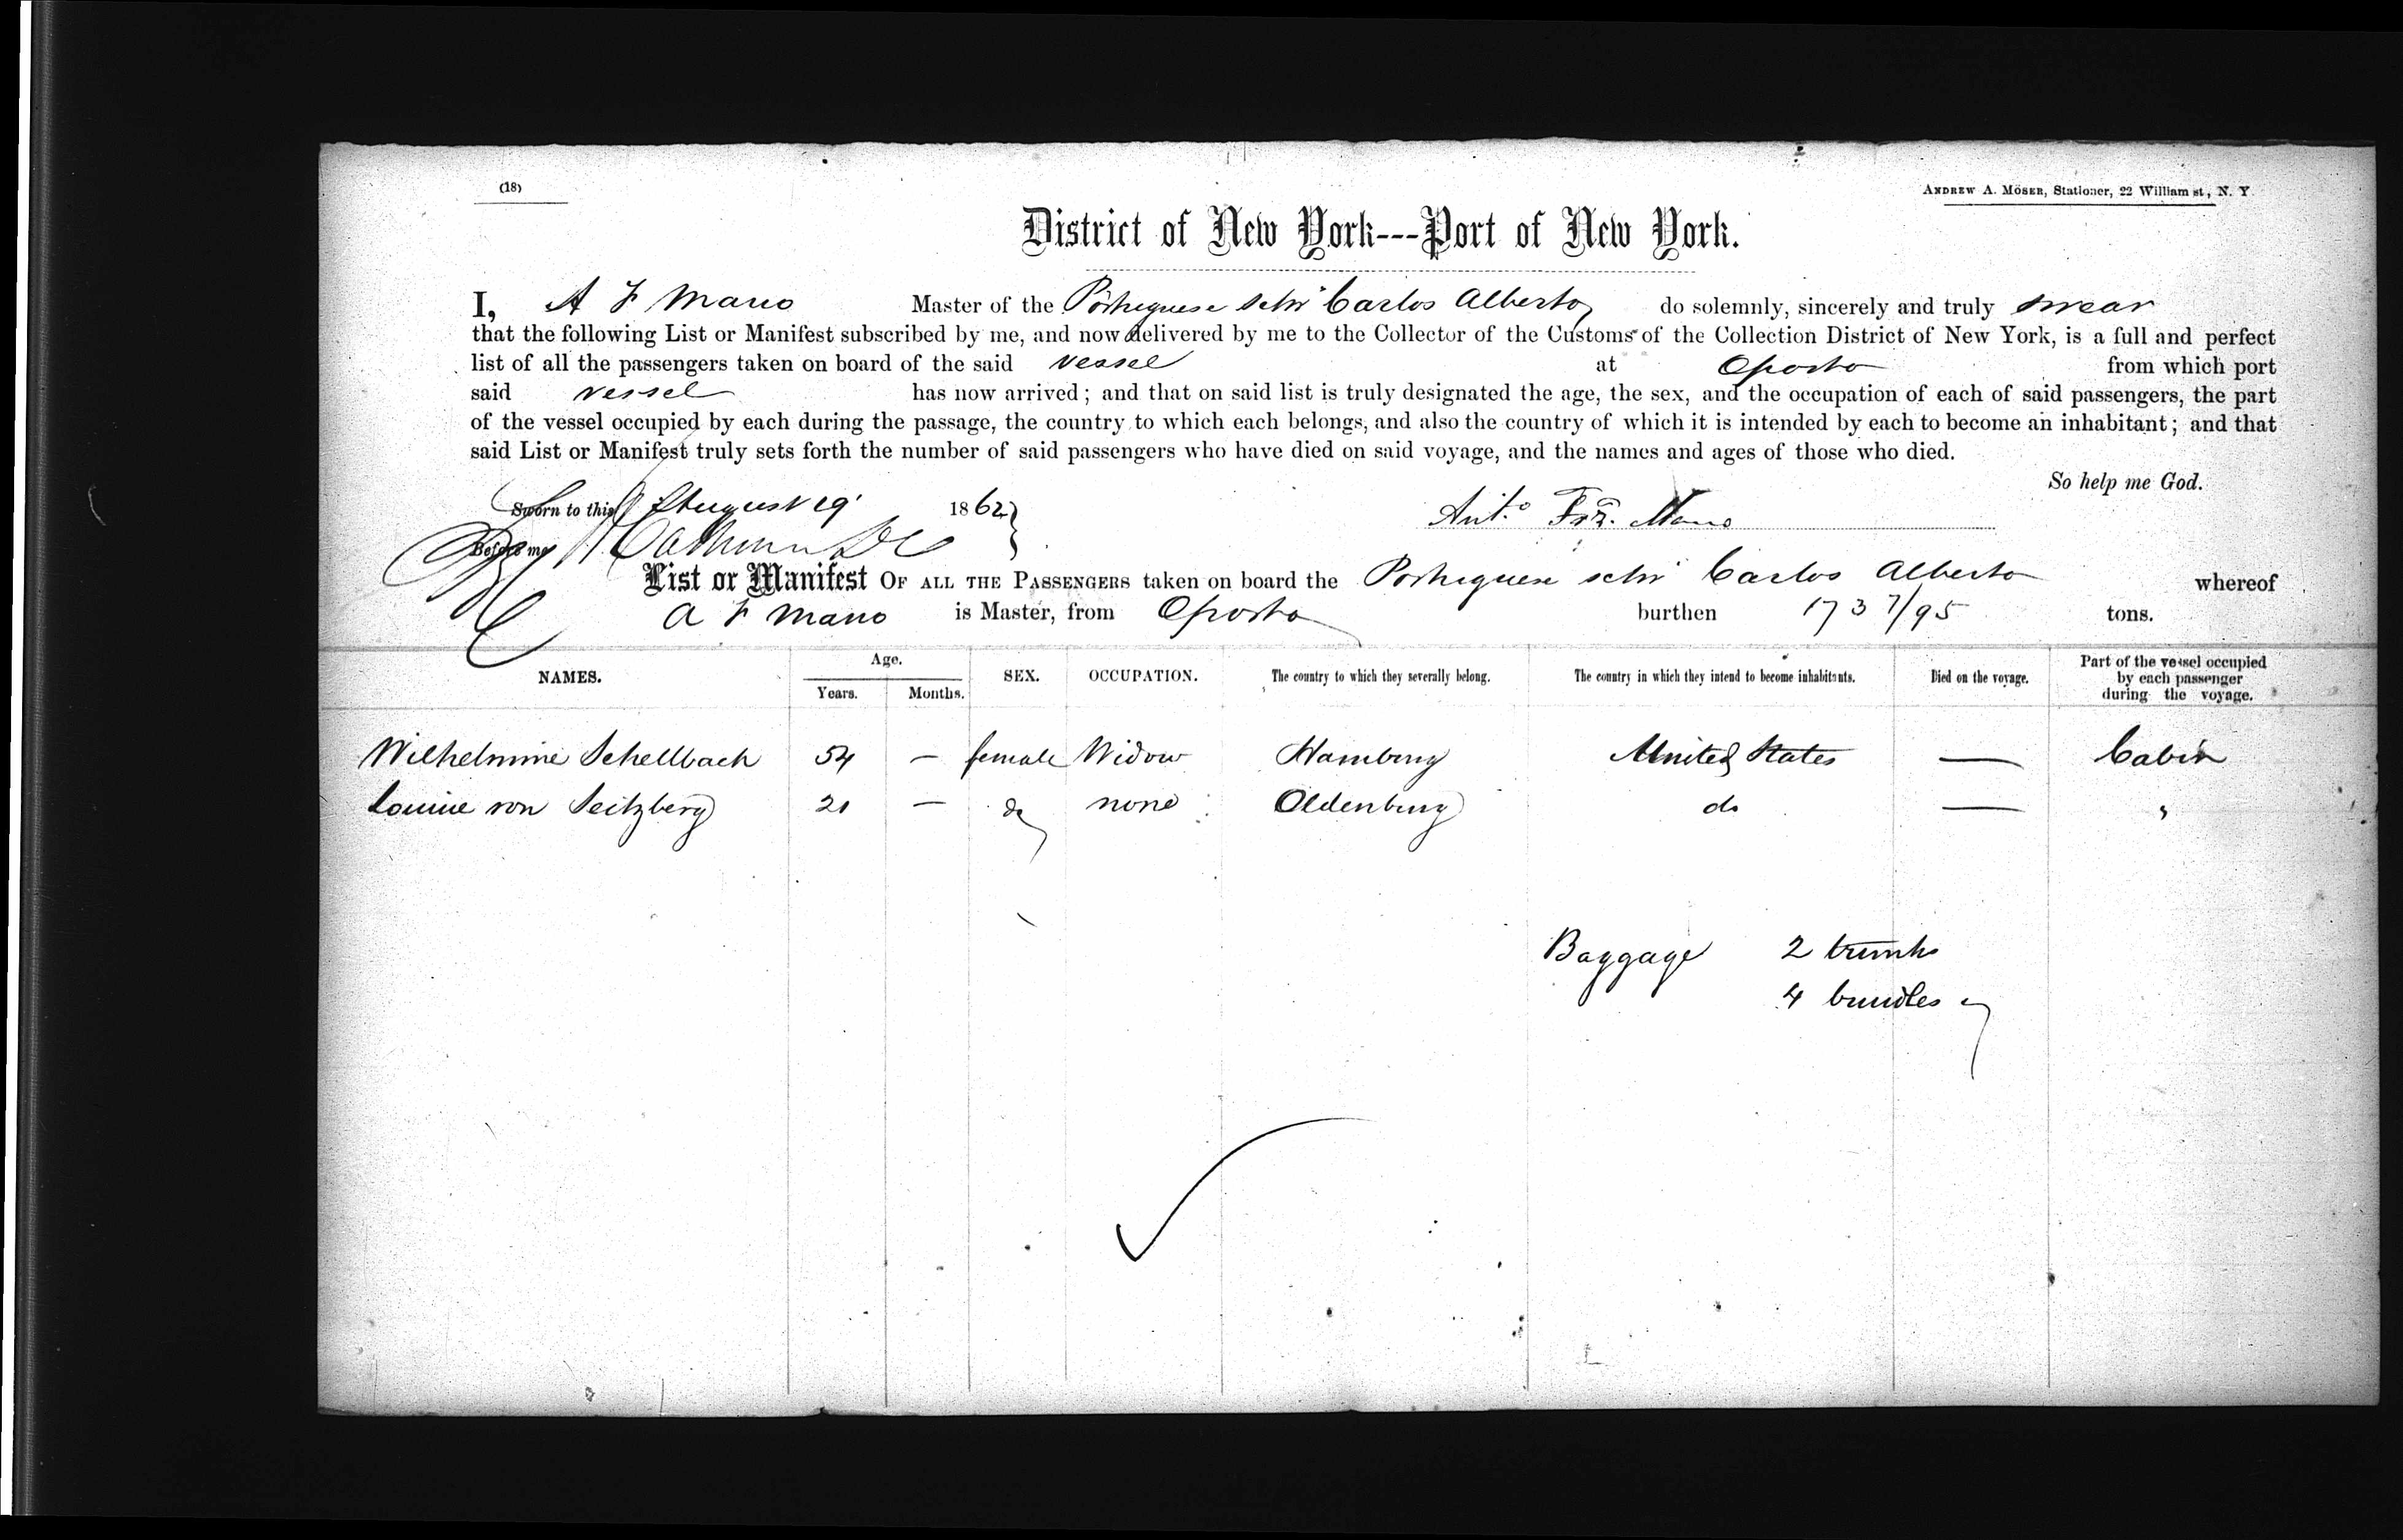 (18)
ANDREW A. MOSER, Stationer, 22 William st., N. Y.
District of New York---Port of New York.
I, A F Mano Master of the Portuguese schr Carlos Alberto do solemnly, sincerely and truly swear
that the following List or Manifest subscribed by me, and now delivered by me to the Collector of the Customs of the Collection District of New York, is a full and perfect
list of all the passengers taken on board of the said vessel at Oporto from which port
said vessel has now arrived; and that on said list is truly designated the age, the sex, and the occupation of each of said passengers, the part
of the vessel occupied by each during the passage, the country to which each belongs, and also the country of which it is intended by each to become an inhabitant; and that
said List or Manifest truly sets forth the number of said passengers who have died on said voyage, and the names and ages of those who died.
So help me God.
Sworn to this August 19 1862
Anto. Mano
Before me
List or Manifest OF ALL THE PASSENGERS taken on board the Portuguese schr Carlos Alberto whereof
A F Mano is Master, from Oporto burthen 173 7/95 tons.
NAMES. Age. SEX. OCCUPATION. The country to which they severally belong. The country in which they intend to become inhabitants. Died on the voyage. Part of the vessel occupied by each passenger during the voyage.
Years. Months.
Wilhelmine Schellbach 54 — female Widow Hamburg United States — Cabin
Louise von Seitzberg 21 — do none Oldenburg do — "
Baggage 2 trunks
4 bundles